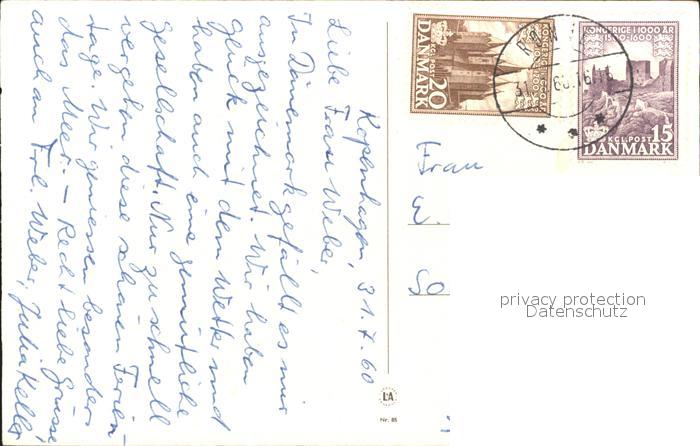 Kopenhagen, 31.7.60
Liebe Frau Weber,
In Dänemark gefällt es mir
ausgezeichnet. Wir haben
glück mit dem Wetter und
haben auch eine gemütliche
gesellschaft. Nur zu schnell
vergehen diese schönen Ferien-
tage. Wir geniessen besonders
das Meer. - Recht liebe Grüsse
auch an Frl. Weber, Julia Keller
KONGERIGE I 1000 ÅR
KGL. POST 20
DANMARK
KONGERIGE I 1000 ÅR
1500-1600
KGL. POST 15
DANMARK
Frau
E.
So
privacy protection
Datenschutz
L&A
Nr. 85